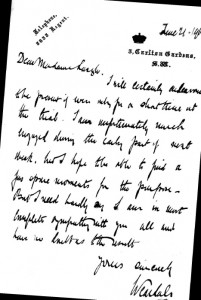 Telephone,
Regent.
June 21 - 19
3, Carlton Gardens,
S.W.
Dear Madame
I will certainly endeavour
to be present if even only for a short time at
the trial. I am unfortunately much
engaged during the early part of next
week. But I hope to be able to find a
few spare moments for the purpose -
But I need hardly say I am in most
complete sympathy with you all and
have no doubt as to the result
Yours sincerely